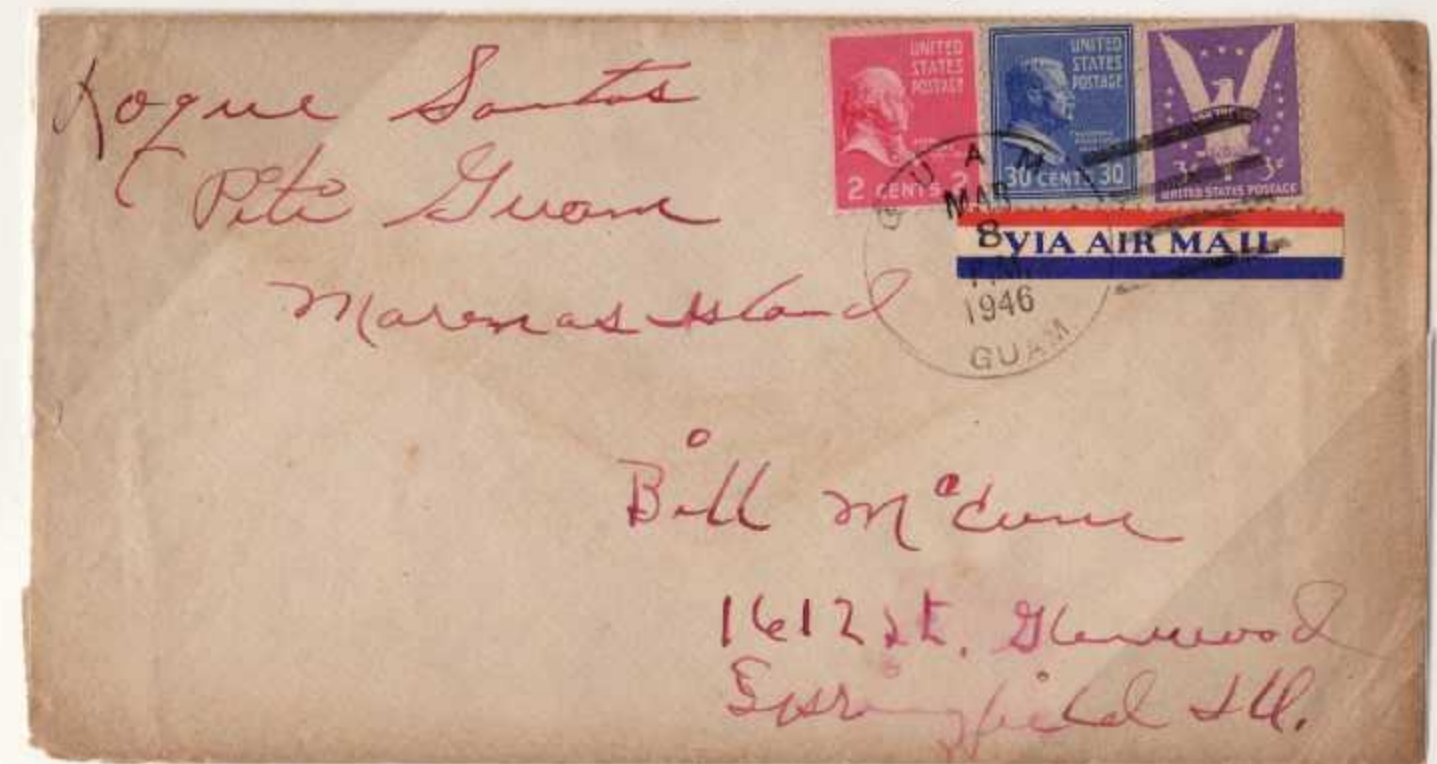 Roque Santos
Piti Guam
Marenas Island
UNITED
STATES
POSTAGE
2 CENTS 2
UNITED
STATES
POSTAGE
30 CENTS 30
3¢ 3¢
UNITED STATES POSTAGE
GUAM
MAR
8
1946
GUAM
VIA AIR MAIL
Bill
1612 St. Glenwood
Springfield Ill.